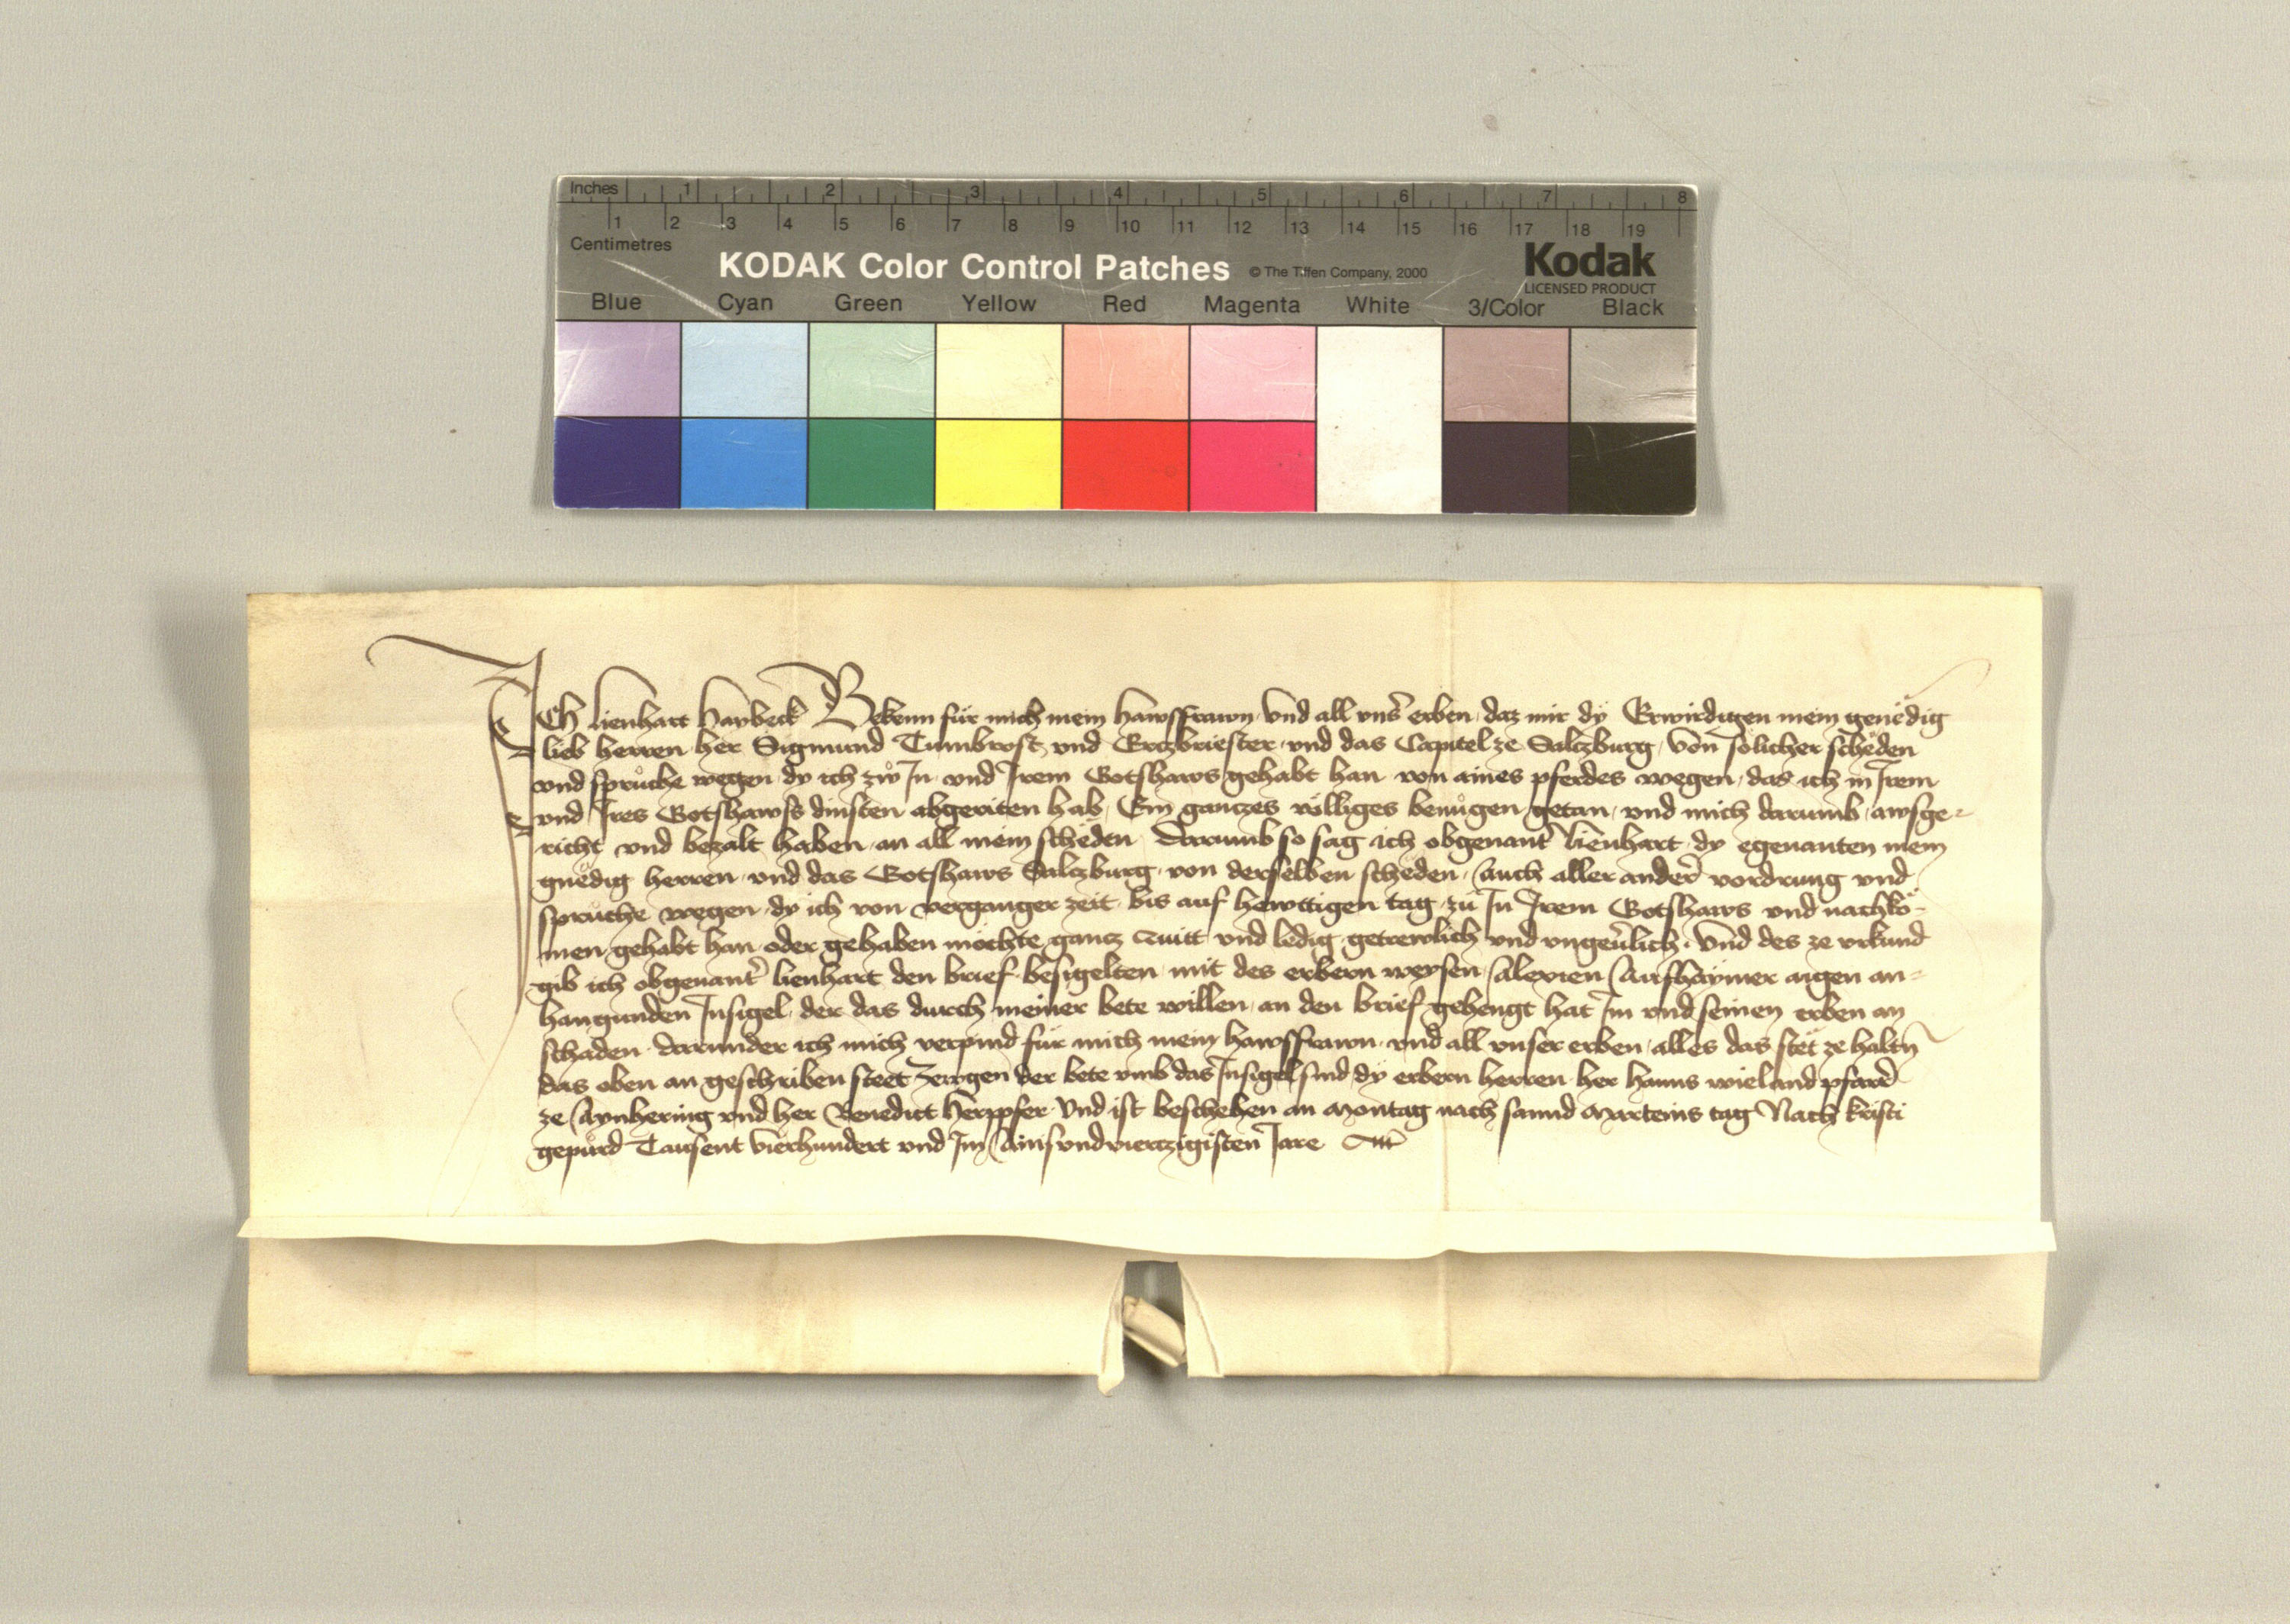 Inches 1 2 3 4 5 6 7 8
1 2 3 4 5 6 7 8 9 10 11 12 13 14 15 16 17 18 19
Centimetres
KODAK Color Control Patches © The Tiffen Company, 2000 Kodak
LICENSED PRODUCT
Blue Cyan Green Yellow Red Magenta White 3/Color Black
Ich lienhart Haybeck Bekenn für mich mein hawsfrawn und all uns̄ erben, daz mir dÿ Erwirdigen mein genëdig
lieb herren her Sigmund Tumbrost und Erczbriester und das Capitel ze Salczburg, von sölicher schëden
und sprüche wegen dy ich zẘ In und Irem Gotshaws gehabt han von aines pferdes wegen, das ich in Irem
und Ires Gotshawss dinsten abgeriten hab, Ein ganczes völliges benügen getan, und mich darumb awsge-
richt und bezalt haben an all mein schëden Darumb so sag ich obgenant̄ lienhart dy egenanten mein
gnëdig herren und das Gotshaws Salczburg von derselben schëden, auch aller ander̄ vordrung und
sprüche wegen dy ich von verganger zeit bis auf hewttigen tag zu In Irem Gotshaws und nachkö-
men gehabt han oder gehaben möchte gancz Quitt und ledig getrewlich und ungeu̇lich. Und des ze urkund
gib ich obgenant̄ lienhart den brief besigelten mit des erbern weysen Alexien Aufhaymer aigen an-
hangunden Insigel, der das durch meiner bete willen an den brief gehengt hat Im und seinen erben an
schaden darunder ich mich verpind für mich mein hawsfrawn und all unser erben alles das stët ze haltn̄
das oben an geschriben steet Zewgen der bete umb das Insigel sind dÿ erbern herren her hanns wieland pfard̄
ze Aynhering und her Benedict Herppfer Und ist beschehen an Montag nach sannd Marteins tag Nach kristi
gepürd Tausent vierhundert und Im Ainsundvierczigisten Jare